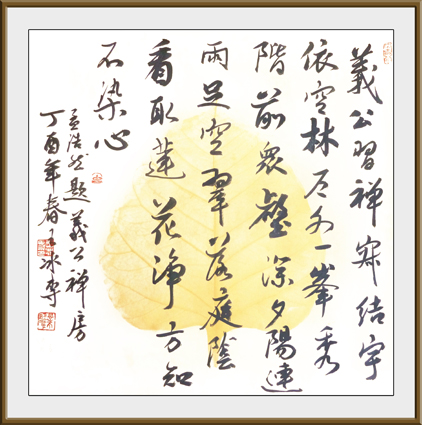 義公習禅寂結宇
依空林戶外一峯秀
階前衆壑深夕陽連
雨足空翠落庭陰
看取蓮花淨方知
不染心
孟浩然題義公禅房
丁酉年春